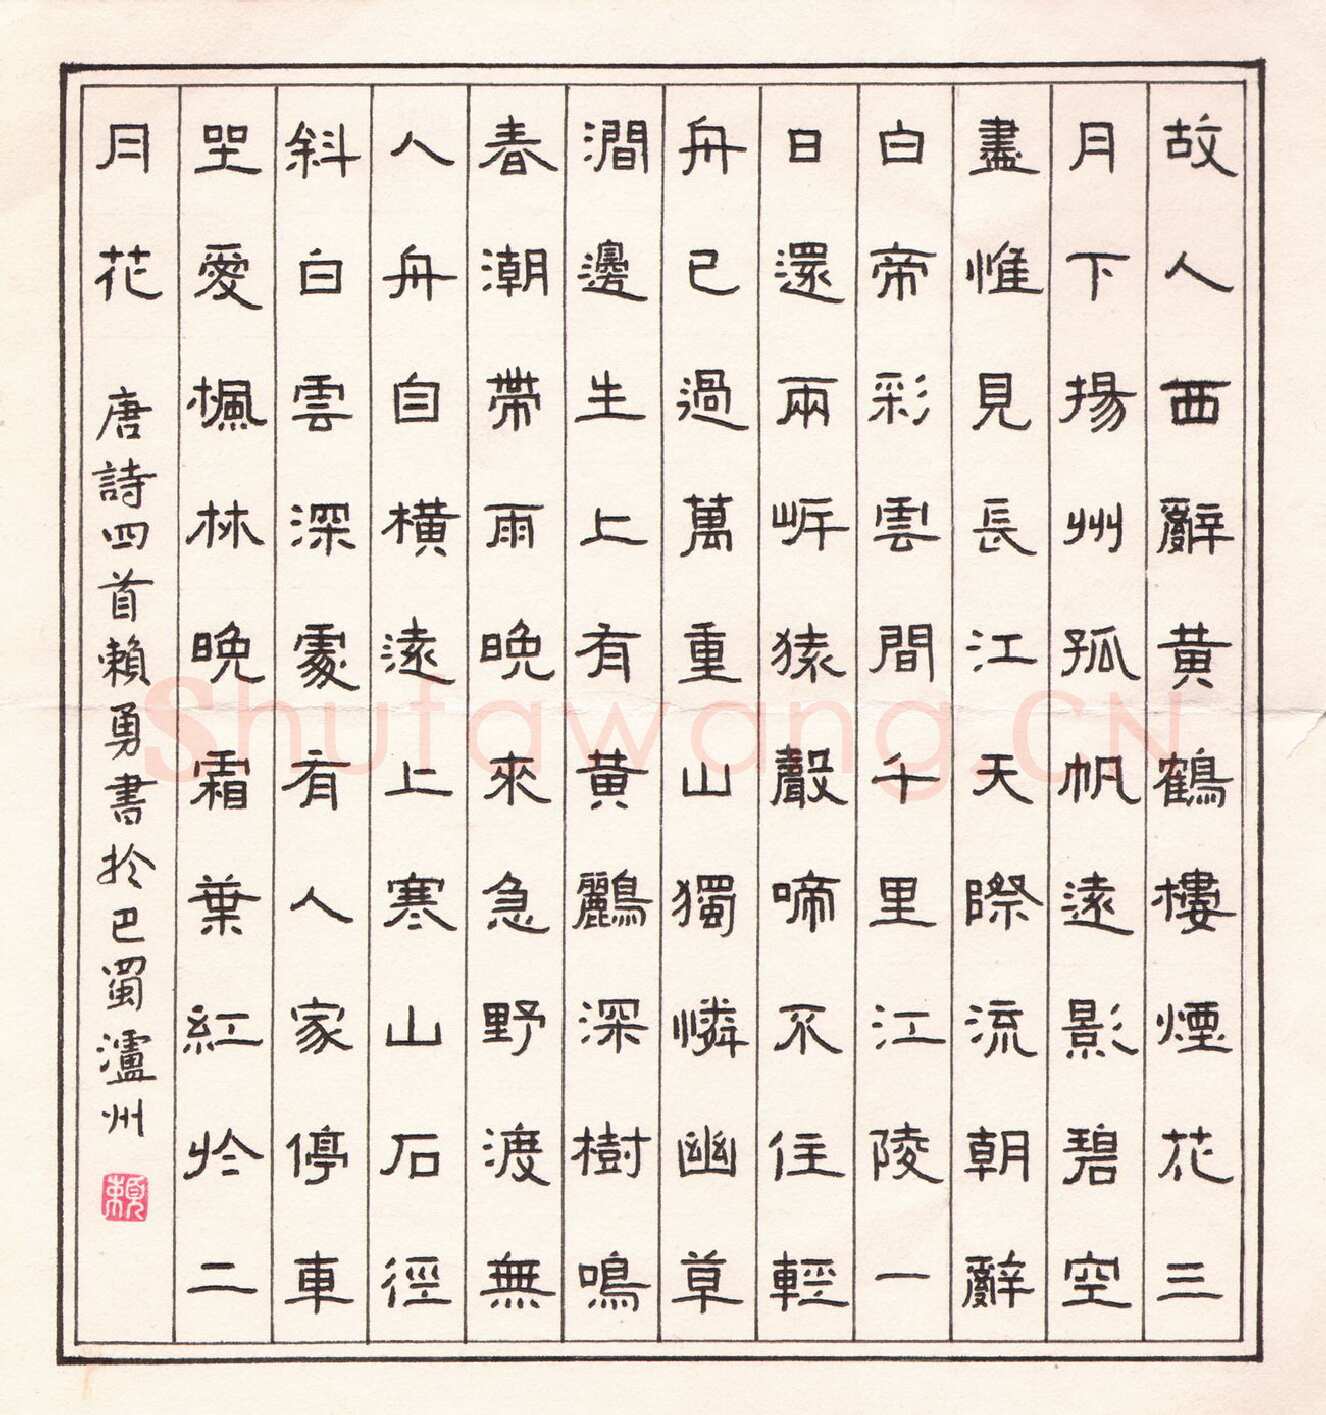 故人西辭黃鶴樓煙花三
月下揚州孤帆遠影碧空
盡惟見長江天際流朝辭
白帝彩雲間千里江陵一
日還兩岸猿聲啼不住輕
舟已過萬重山獨憐幽草
澗邊生上有黃鸝深樹鳴
春潮帶雨晚來急野渡無
人舟自橫遠上寒山石徑
斜白雲深處有人家停車
坐愛楓林晚霜葉紅於二
月花 唐詩四首賴勇書於巴蜀瀘州
賴
Shufawang.CN